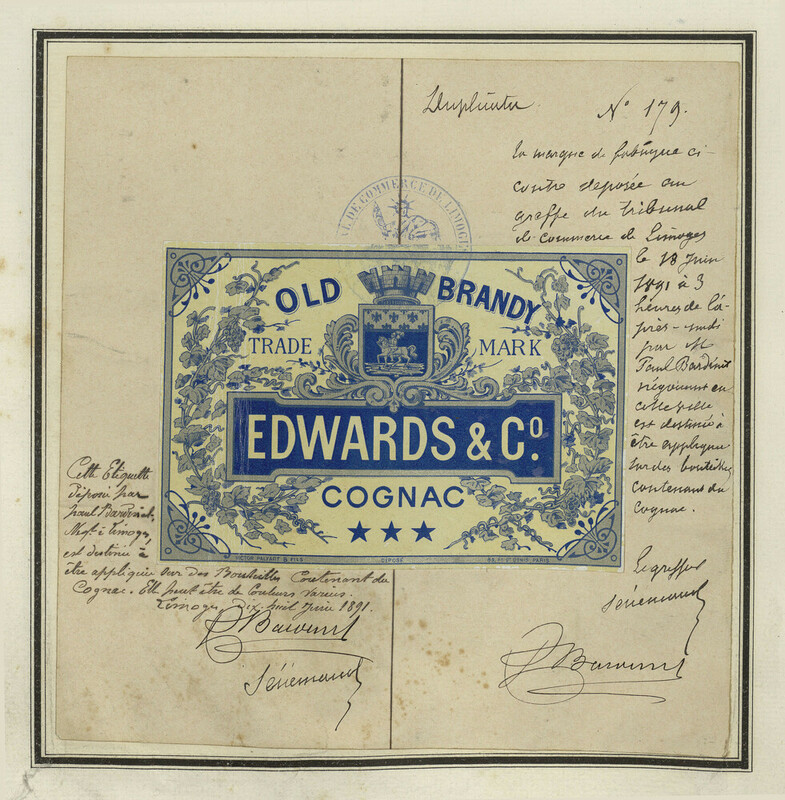 Duplicata
N° 179.
la marque de fabrique ci-
contre déposée au
greffe du tribunal
de commerce de Limoges
le 18 Juin
1891 à 3
heures de l'a-
près-midi
par M
Paul Bardinet
négociant en
cette ville
est destinée à
être appliquée
sur des bouteilles
contenant du
Cognac.
Le greffier
P Bardinet
DE COMMERCE DE LIMOGES
OLD BRANDY
TRADE MARK
EDWARDS & Cº.
COGNAC
VICTOR PALYART & FILS
DÉPOSÉ
PARIS
Cette Etiquette
déposée par
Paul Bardinet
Négt à Limoges,
est destinée à
être appliquée sur des Bouteilles Contenant du
Cognac. Elle peut être de Couleurs variées.
Limoges, Dix-huit Juin 1891.
P Bardinet